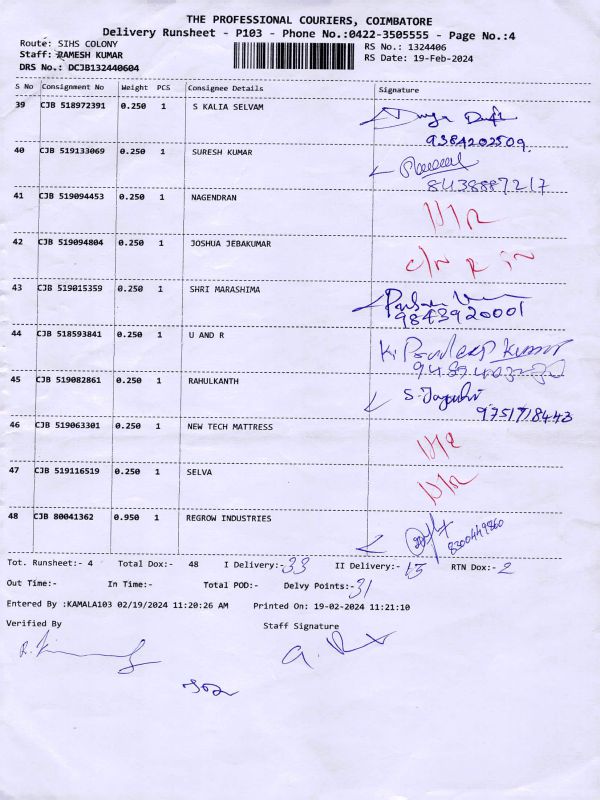 THE PROFESSIONAL COURIERS, COIMBATORE
Delivery Runsheet - P103 - Phone No.:0422-3505555 - Page No.:4
Route: SIHS COLONY
RS No.: 1324406
Staff: RAMESH KUMAR
RS Date: 19-Feb-2024
DRS No.: DCJB132440604
S No Consignment No Weight PCS Consignee Details Signature
39 CJB 518972391 0.250 1 S KALIA SELVAM
9384202509
40 CJB 519133069 0.250 1 SURESH KUMAR
8438887217
41 CJB 519094453 0.250 1 NAGENDRAN
42 CJB 519094804 0.250 1 JOSHUA JEBAKUMAR
43 CJB 519015359 0.250 1 SHRI MARASHIMA
9843920001
44 CJB 518593841 0.250 1 U AND R
K. Pradeep Kumar
45 CJB 519082861 0.250 1 RAHULKANTH
9751718443
46 CJB 519063301 0.250 1 NEW TECH MATTRESS
47 CJB 519116519 0.250 1 SELVA
48 CJB 80041362 0.950 1 REGROW INDUSTRIES
8300449860
Tot. Runsheet:- 4 Total Dox:- 48 I Delivery:- 33 II Delivery:- 13 RTN Dox:- 2
Out Time:- In Time:- Total POD:- Delvy Points:- 31
Entered By :KAMALA103 02/19/2024 11:20:26 AM Printed On: 19-02-2024 11:21:10
Verified By Staff Signature